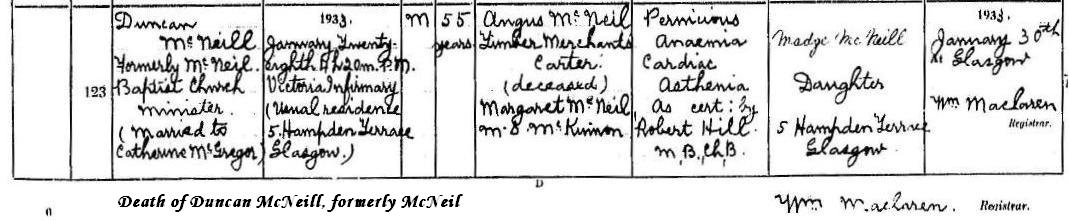 123
Duncan
McNeill
formerly McNeil
Baptist Church
Minister
(Married to
Catherine McGregor)
1933,
January Twenty-
eighth 4h 20m. P.M.
Victoria Infirmary
(Usual residence
5 Hampden Terrace
Glasgow.)
M
55
years
Angus McNeil
Timber Merchants
Carter
(deceased)
Margaret McNeil
m.s. McKinnon
Pernicious
Anaemia
Cardiac
Asthenia
As cert: by
Robert Hill
M,B,Ch,B.
Madge McNeill
Daughter
5 Hampden Terrace
Glasgow
1933,
January 30th
At Glasgow
Wm Maclaren
Registrar.
D
Death of Duncan McNeill, formerly McNeil
Wm Maclaren.
Registrar.